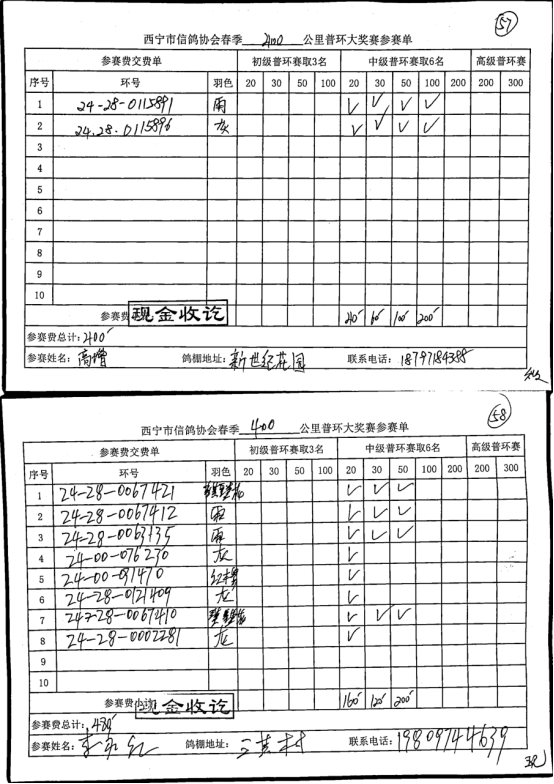 57
西宁市信鸽协会春季 400 公里普环大奖赛参赛单
参赛费交费单 初级普环赛取3名 中级普环赛取6名 高级普环赛
序号 环号 羽色 20 30 50 100 20 30 50 100 200 200 300
1 24-28-0115891 雨 ✓ ✓ ✓ ✓
2 24.28.0115896 灰 ✓ ✓ ✓ ✓
3
4
5
6
7
8
9
10
参赛费 现金收讫 60 100 200
参赛费总计: 400
参赛姓名: 高增 鸽棚地址: 新世纪花园 联系电话: 18797184388
58
西宁市信鸽协会春季 400 公里普环大奖赛参赛单
参赛费交费单 初级普环赛取3名 中级普环赛取6名 高级普环赛
序号 环号 羽色 20 30 50 100 20 30 50 100 200 200 300
1 24-28-0067421 ✓ ✓ ✓
2 24-28-0067412 雨 ✓ ✓ ✓
3 24-28-0063735 雨 ✓ ✓ ✓
4 24-00-076230 灰 ✓
5 24-00-091470 红楞 ✓
6 24-28-0121409 灰 ✓
7 24-28-0067410 ✓ ✓ ✓
8 24-28-0002281 灰 ✓
9
10
参赛费小计 现金收讫 160 120 200
参赛费总计: 480
参赛姓名: 鸽棚地址: 三其村 联系电话: 19809744639